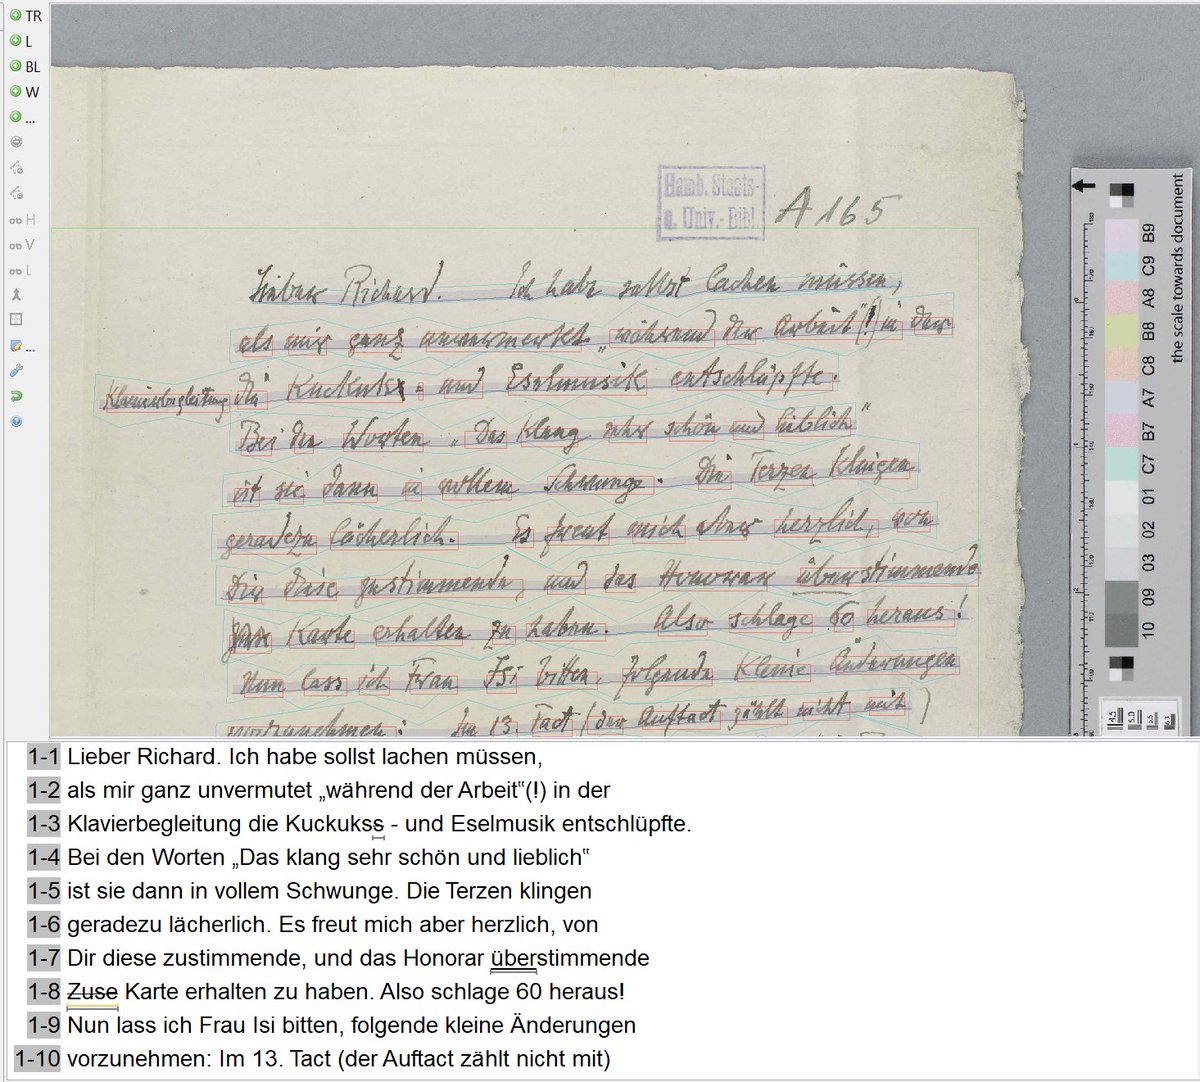 TR
L
BL
W
...
H
V
L
...
Hamb. Staats-
u. Univ.-Bibl.
A 165
Lieber Richard. Ich habe selbst lachen müssen,
als mir ganz unvermerkt „während der Arbeit“(!) in der
Klavierbegleitung die Kuckuks - und Eselmusik entschlüpfte.
Bei den Worten „Das klang sehr schön und lieblich“
ist sie dann in vollem Schwunge. Die Terzen klingen
geradezu lächerlich. Es freut mich aber herzlich, von
Dir diese zustimmende, und das Honorar überstimmende
Karte erhalten zu haben. Also schlage 60 heraus!
Nun lass ich Frau Isi bitten, folgende kleine Änderungen
vorzunehmen: Im 13. Tact (der Auftact zählt nicht mit)
the scale towards document
B9
C9
A8
B8
C8
A7
B7
C7
01
02
03
09
10
1-1 Lieber Richard. Ich habe sollst lachen müssen,
1-2 als mir ganz unvermutet „während der Arbeit“(!) in der
1-3 Klavierbegleitung die Kuckukss - und Eselmusik entschlüpfte.
1-4 Bei den Worten „Das klang sehr schön und lieblich“
1-5 ist sie dann in vollem Schwunge. Die Terzen klingen
1-6 geradezu lächerlich. Es freut mich aber herzlich, von
1-7 Dir diese zustimmende, und das Honorar überstimmende
1-8 Zuse Karte erhalten zu haben. Also schlage 60 heraus!
1-9 Nun lass ich Frau Isi bitten, folgende kleine Änderungen
1-10 vorzunehmen: Im 13. Tact (der Auftact zählt nicht mit)